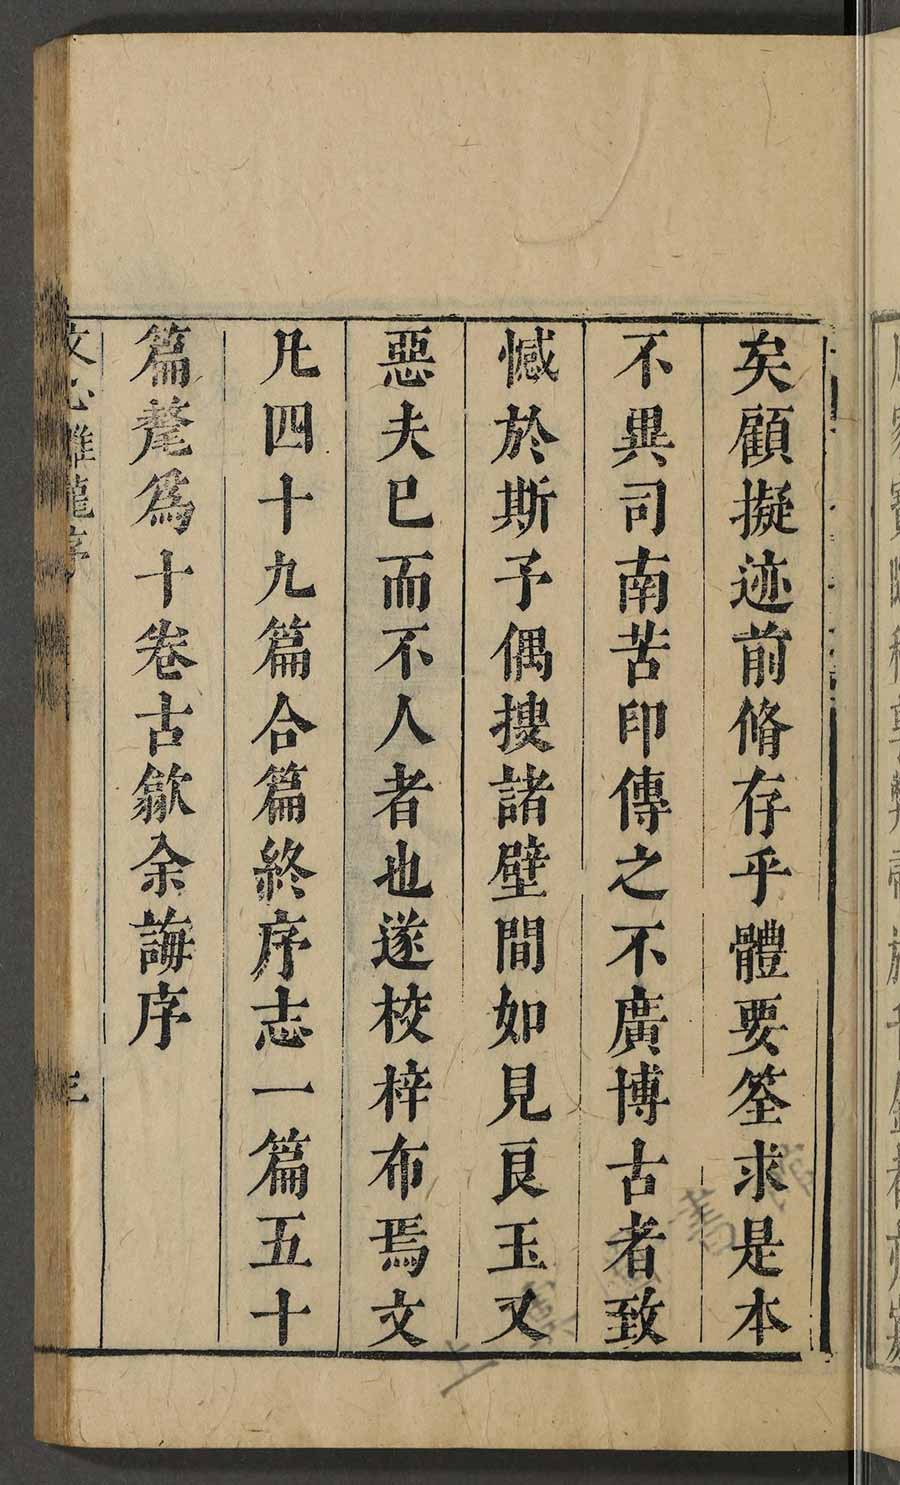 矣顧擬迹前脩存乎體要筌求是本
不異司南苦印傳之不廣博古者致
憾於斯予偶搜諸壁間如見良玉又
惡夫已而不人者也遂校梓布焉文
凡四十九篇合篇終序志一篇五十
篇釐爲十卷古歙余誨序
文心雕龍序